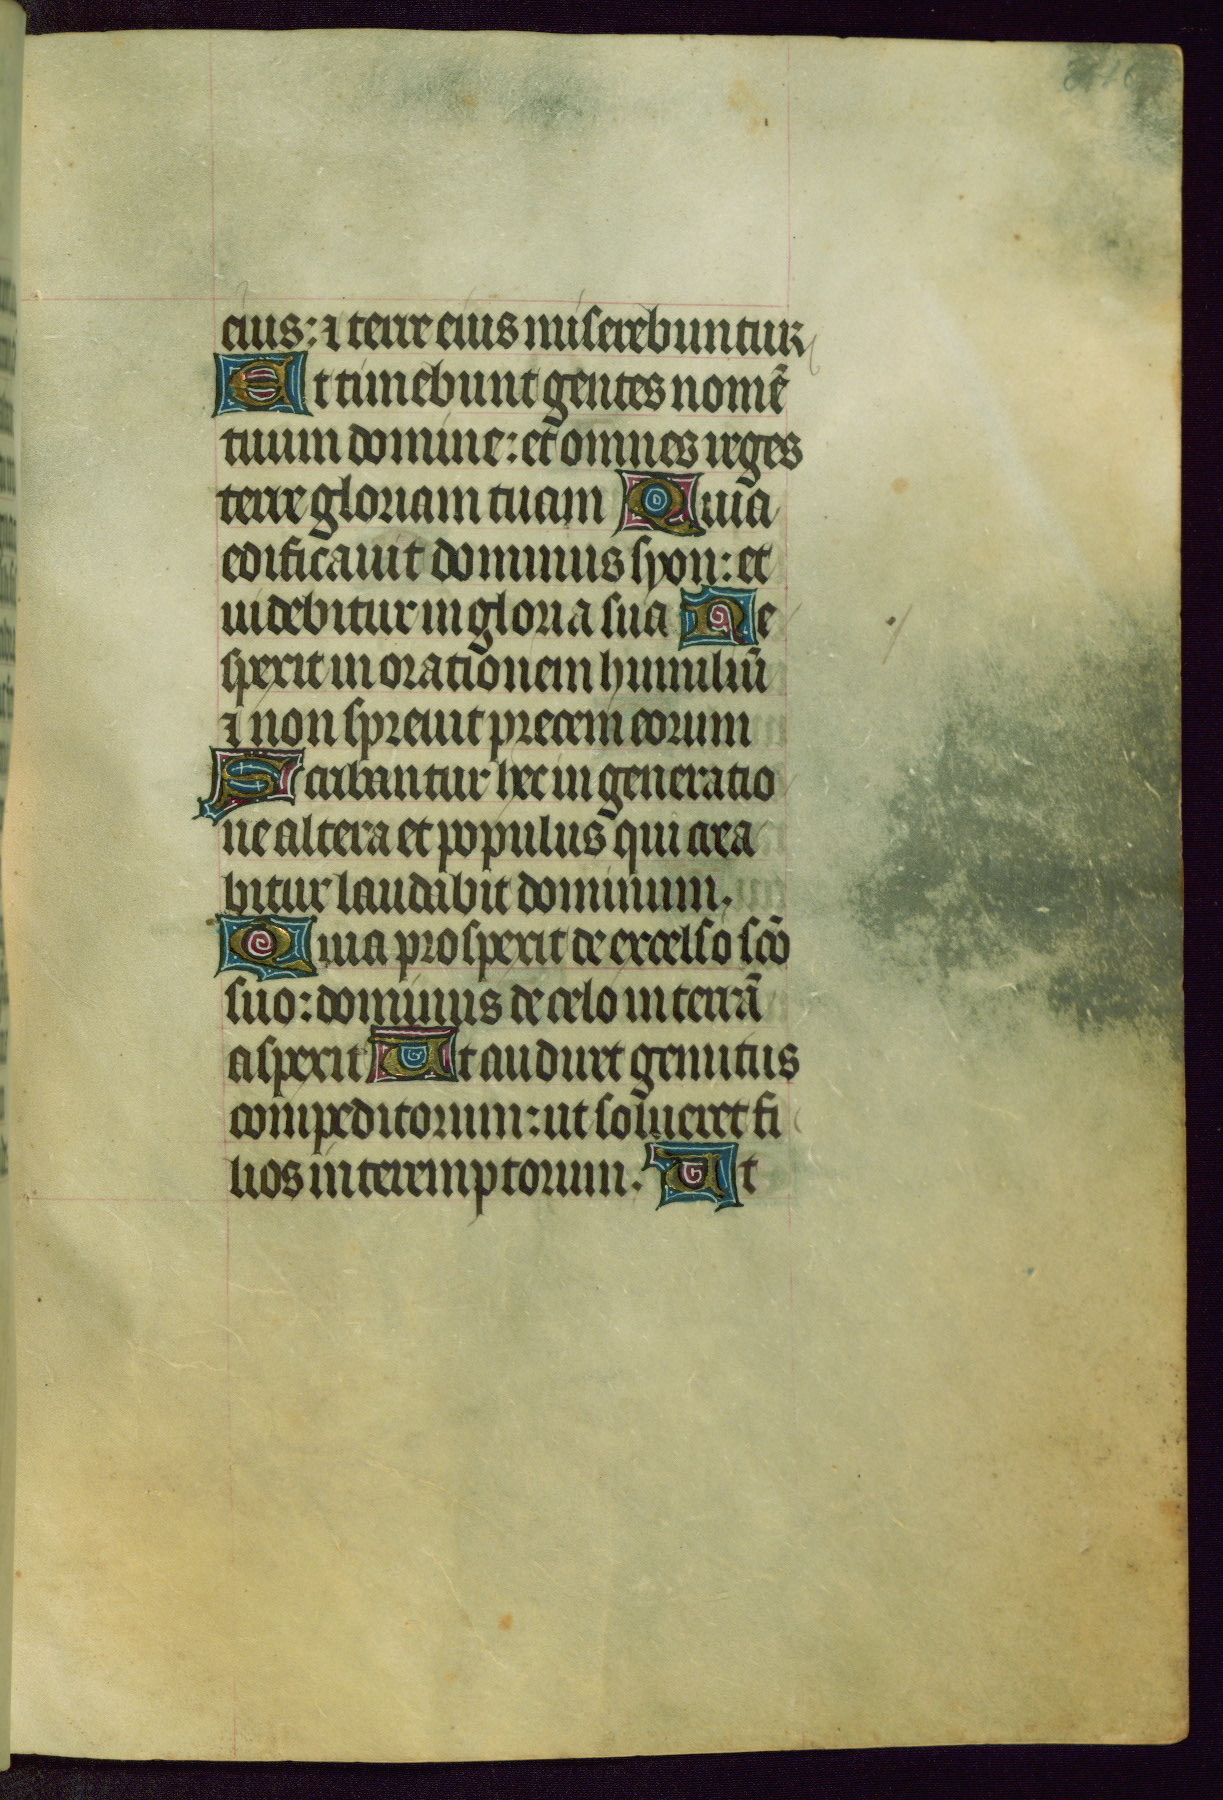 eius: ⁊ terre eius miserebuntur
Et timebunt gentes nomē
tuum domine: et omnes reges
terre gloriam tuam Quia
edificauit dominus syon: et
uidebitur in gloria sua Re
spexit in orationem humiliū
⁊ non spreuit precem eorum
Scribantur hec in generatio
ne altera et populus qui crea
bitur laudabit dominum.
Quia prospexit de excelso scō
suo: dominus de celo in terrā
aspexit Ut audiret gemitus
compeditorum: ut solueret fi
lios interemptorum. Ut